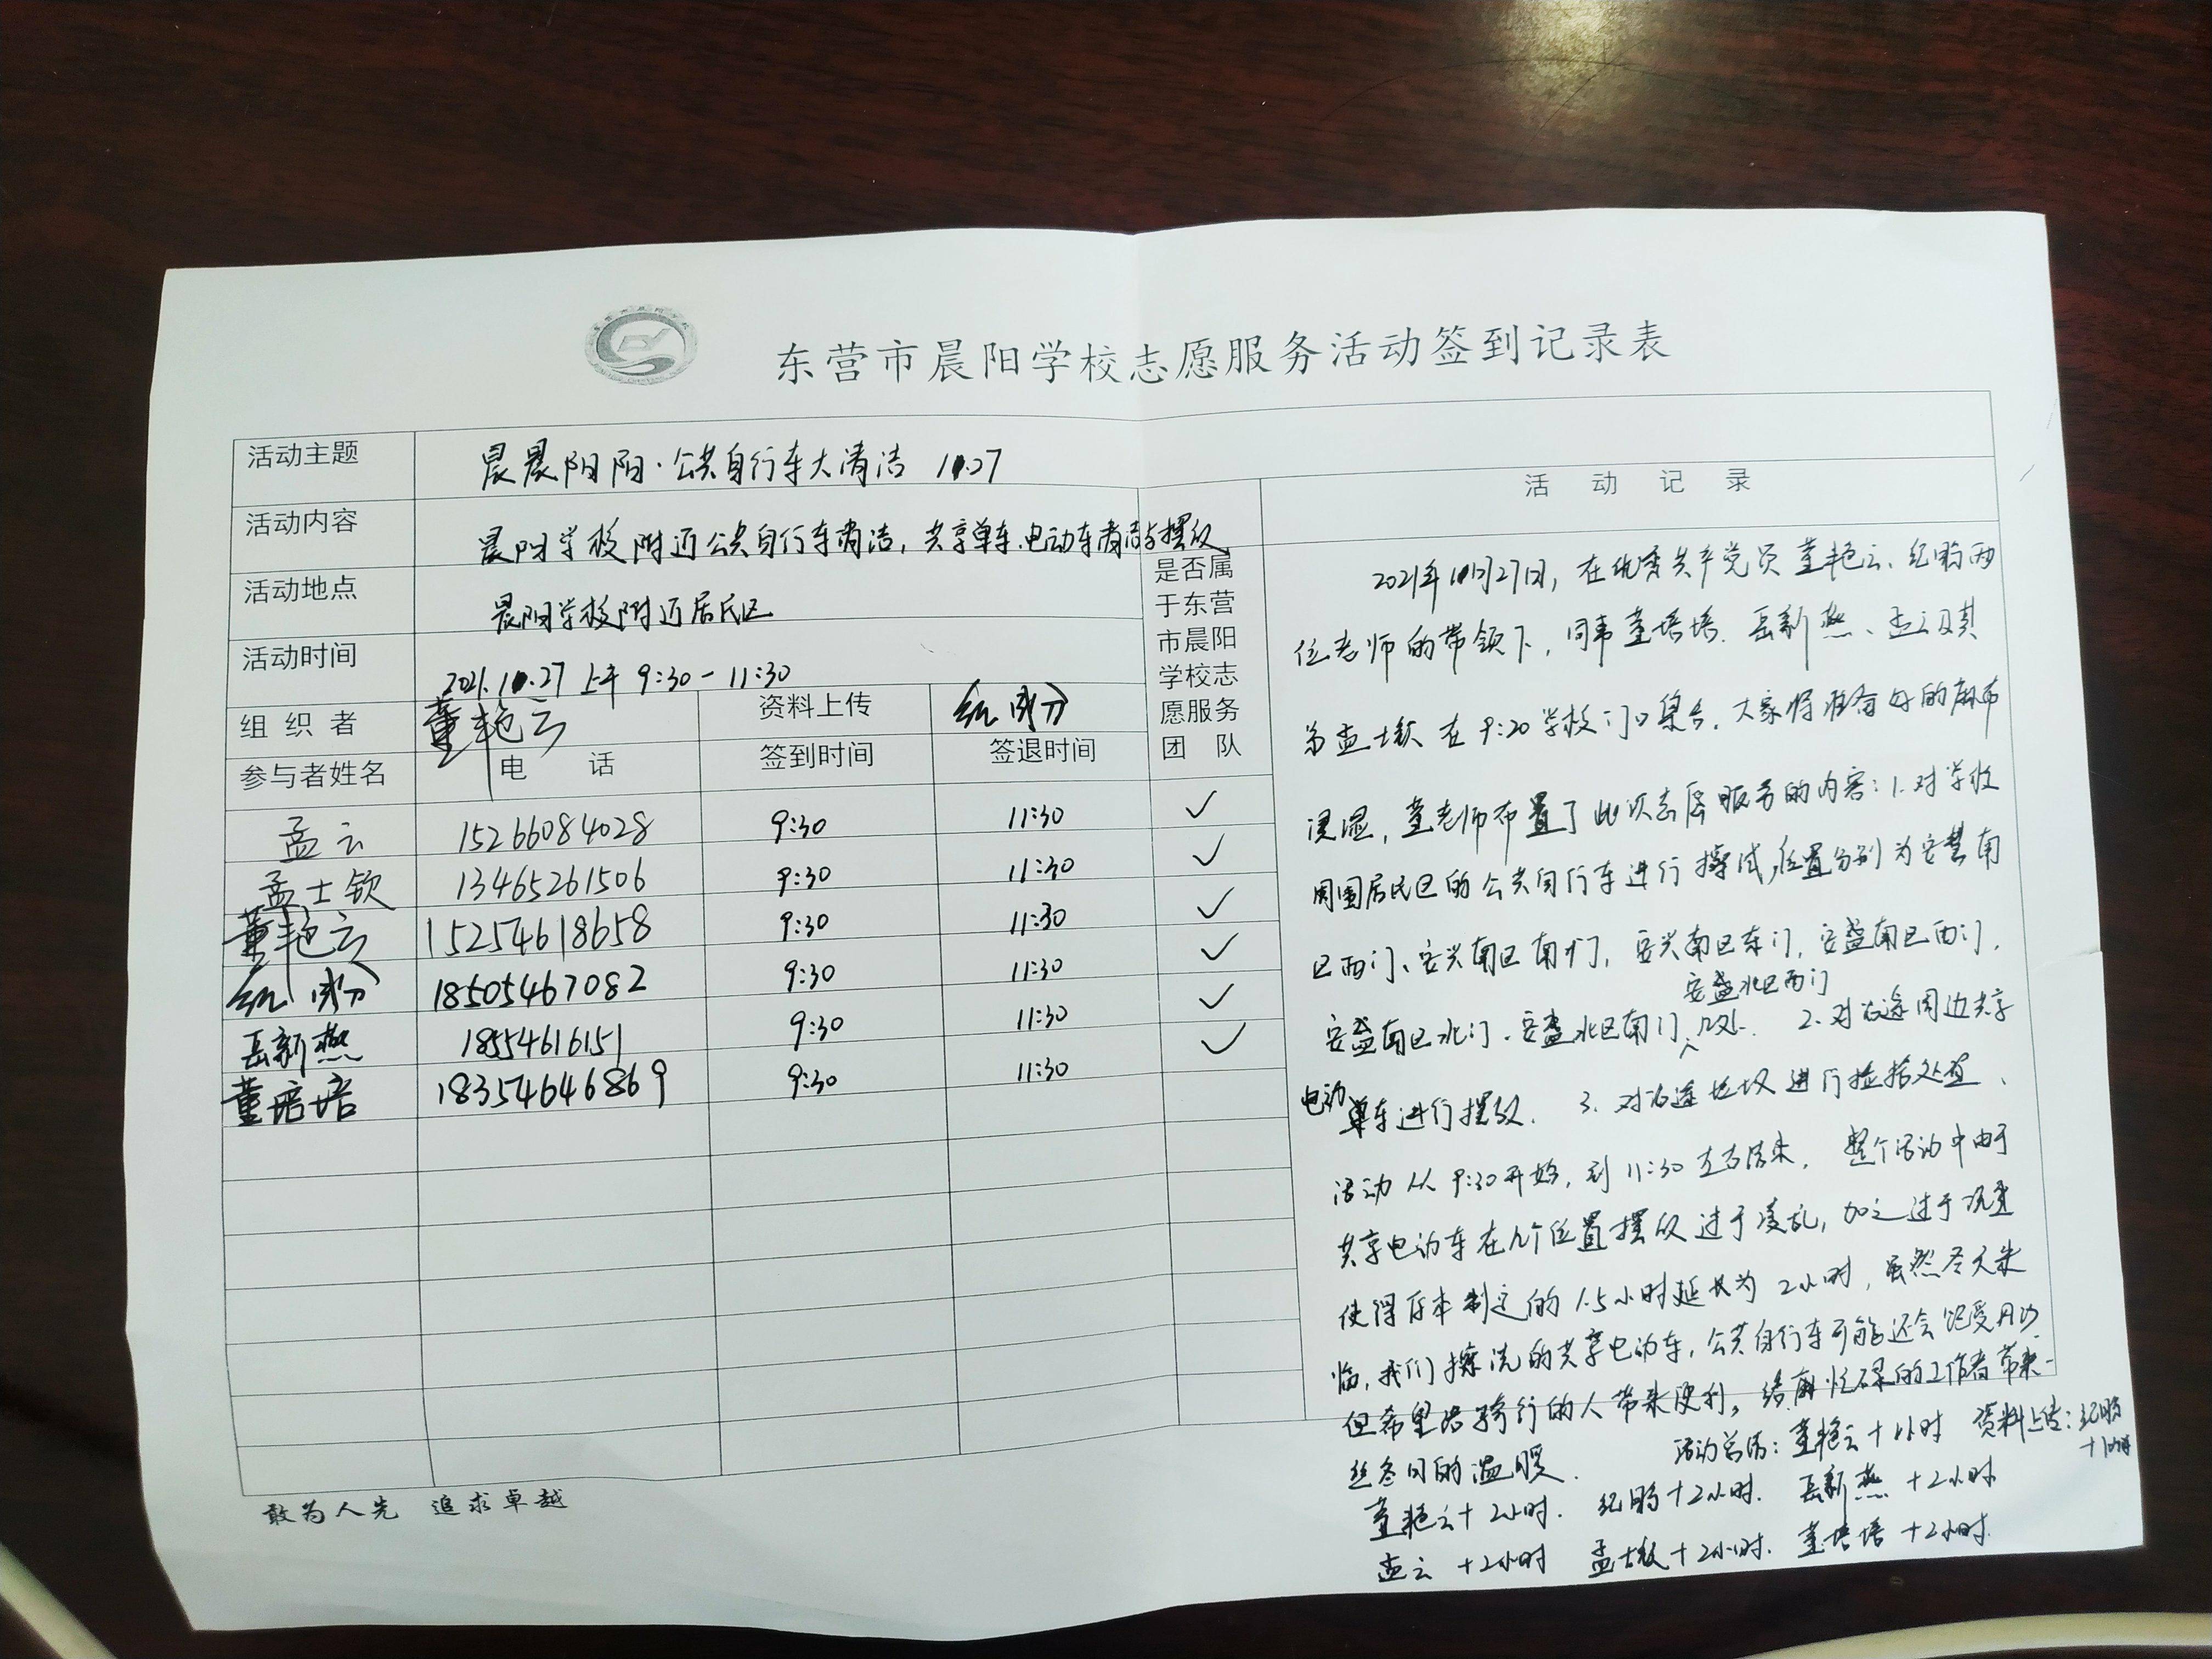 东营市晨阳学校志愿服务活动签到记录表
活动主题 晨晨阳阳·公共自行车大清洁 10.27
活动内容 晨阳学校附近公共自行车清洁，共享单车、电动车清洁与摆放
活动地点 晨阳学校附近居民区
活动时间 2021.10.27 上午 9:30-11:30
组织者 董艳云 资料上传
参与者姓名 电话 签到时间 签退时间
是否属
于东营
市晨阳
学校志
愿服务
团队
孟云 15266084028 9:30 11:30 ✓
孟士钦 13465261506 9:30 11:30 ✓
董艳云 15254618658 9:30 11:30 ✓
18505467082 9:30 11:30 ✓
岳新燕 18554616151 9:30 11:30 ✓
董培培 18354646869 9:30 11:30 ✓
敢为人先 追求卓越
活动记录
2021年10月27日，在优秀共产党员董艳云、纪鹏两
位老师的带领下，同事董培培、岳新燕、孟云及其
弟孟士钦在9:20学校门口集合，大家将准备好的麻布
浸湿，董老师布置了此次志愿服务的内容：1.对学校
周围居民区的公共自行车进行擦拭，位置分别为安慧南
区西门、安兴南区南门，安兴南区东门，安盛南区西门，
安盛北区西门
安盛南区北门、安盛北区南门几处. 2.对沿途周边共享
电动单车进行摆放. 3.对沿途垃圾进行捡拾处置、
活动从9:30开始，到11:30左右结束，整个活动中由于
共享电动车在几个位置摆放过于凌乱，加之过于沉重
使得原本制定的1.5小时延长为2小时，虽然冬天来
临，我们擦洗的共享电动车，公共自行车可能还会
但希望给骑行的人带来便利，给忙碌的工作者带来一
丝冬日的温暖. 活动总结：董艳云+1小时 资料上传：纪鹏
+1小时
董艳云+2小时. 纪鹏+2小时. 岳新燕+2小时
孟云+2小时 孟士钦+2小时. 董培培+2小时.